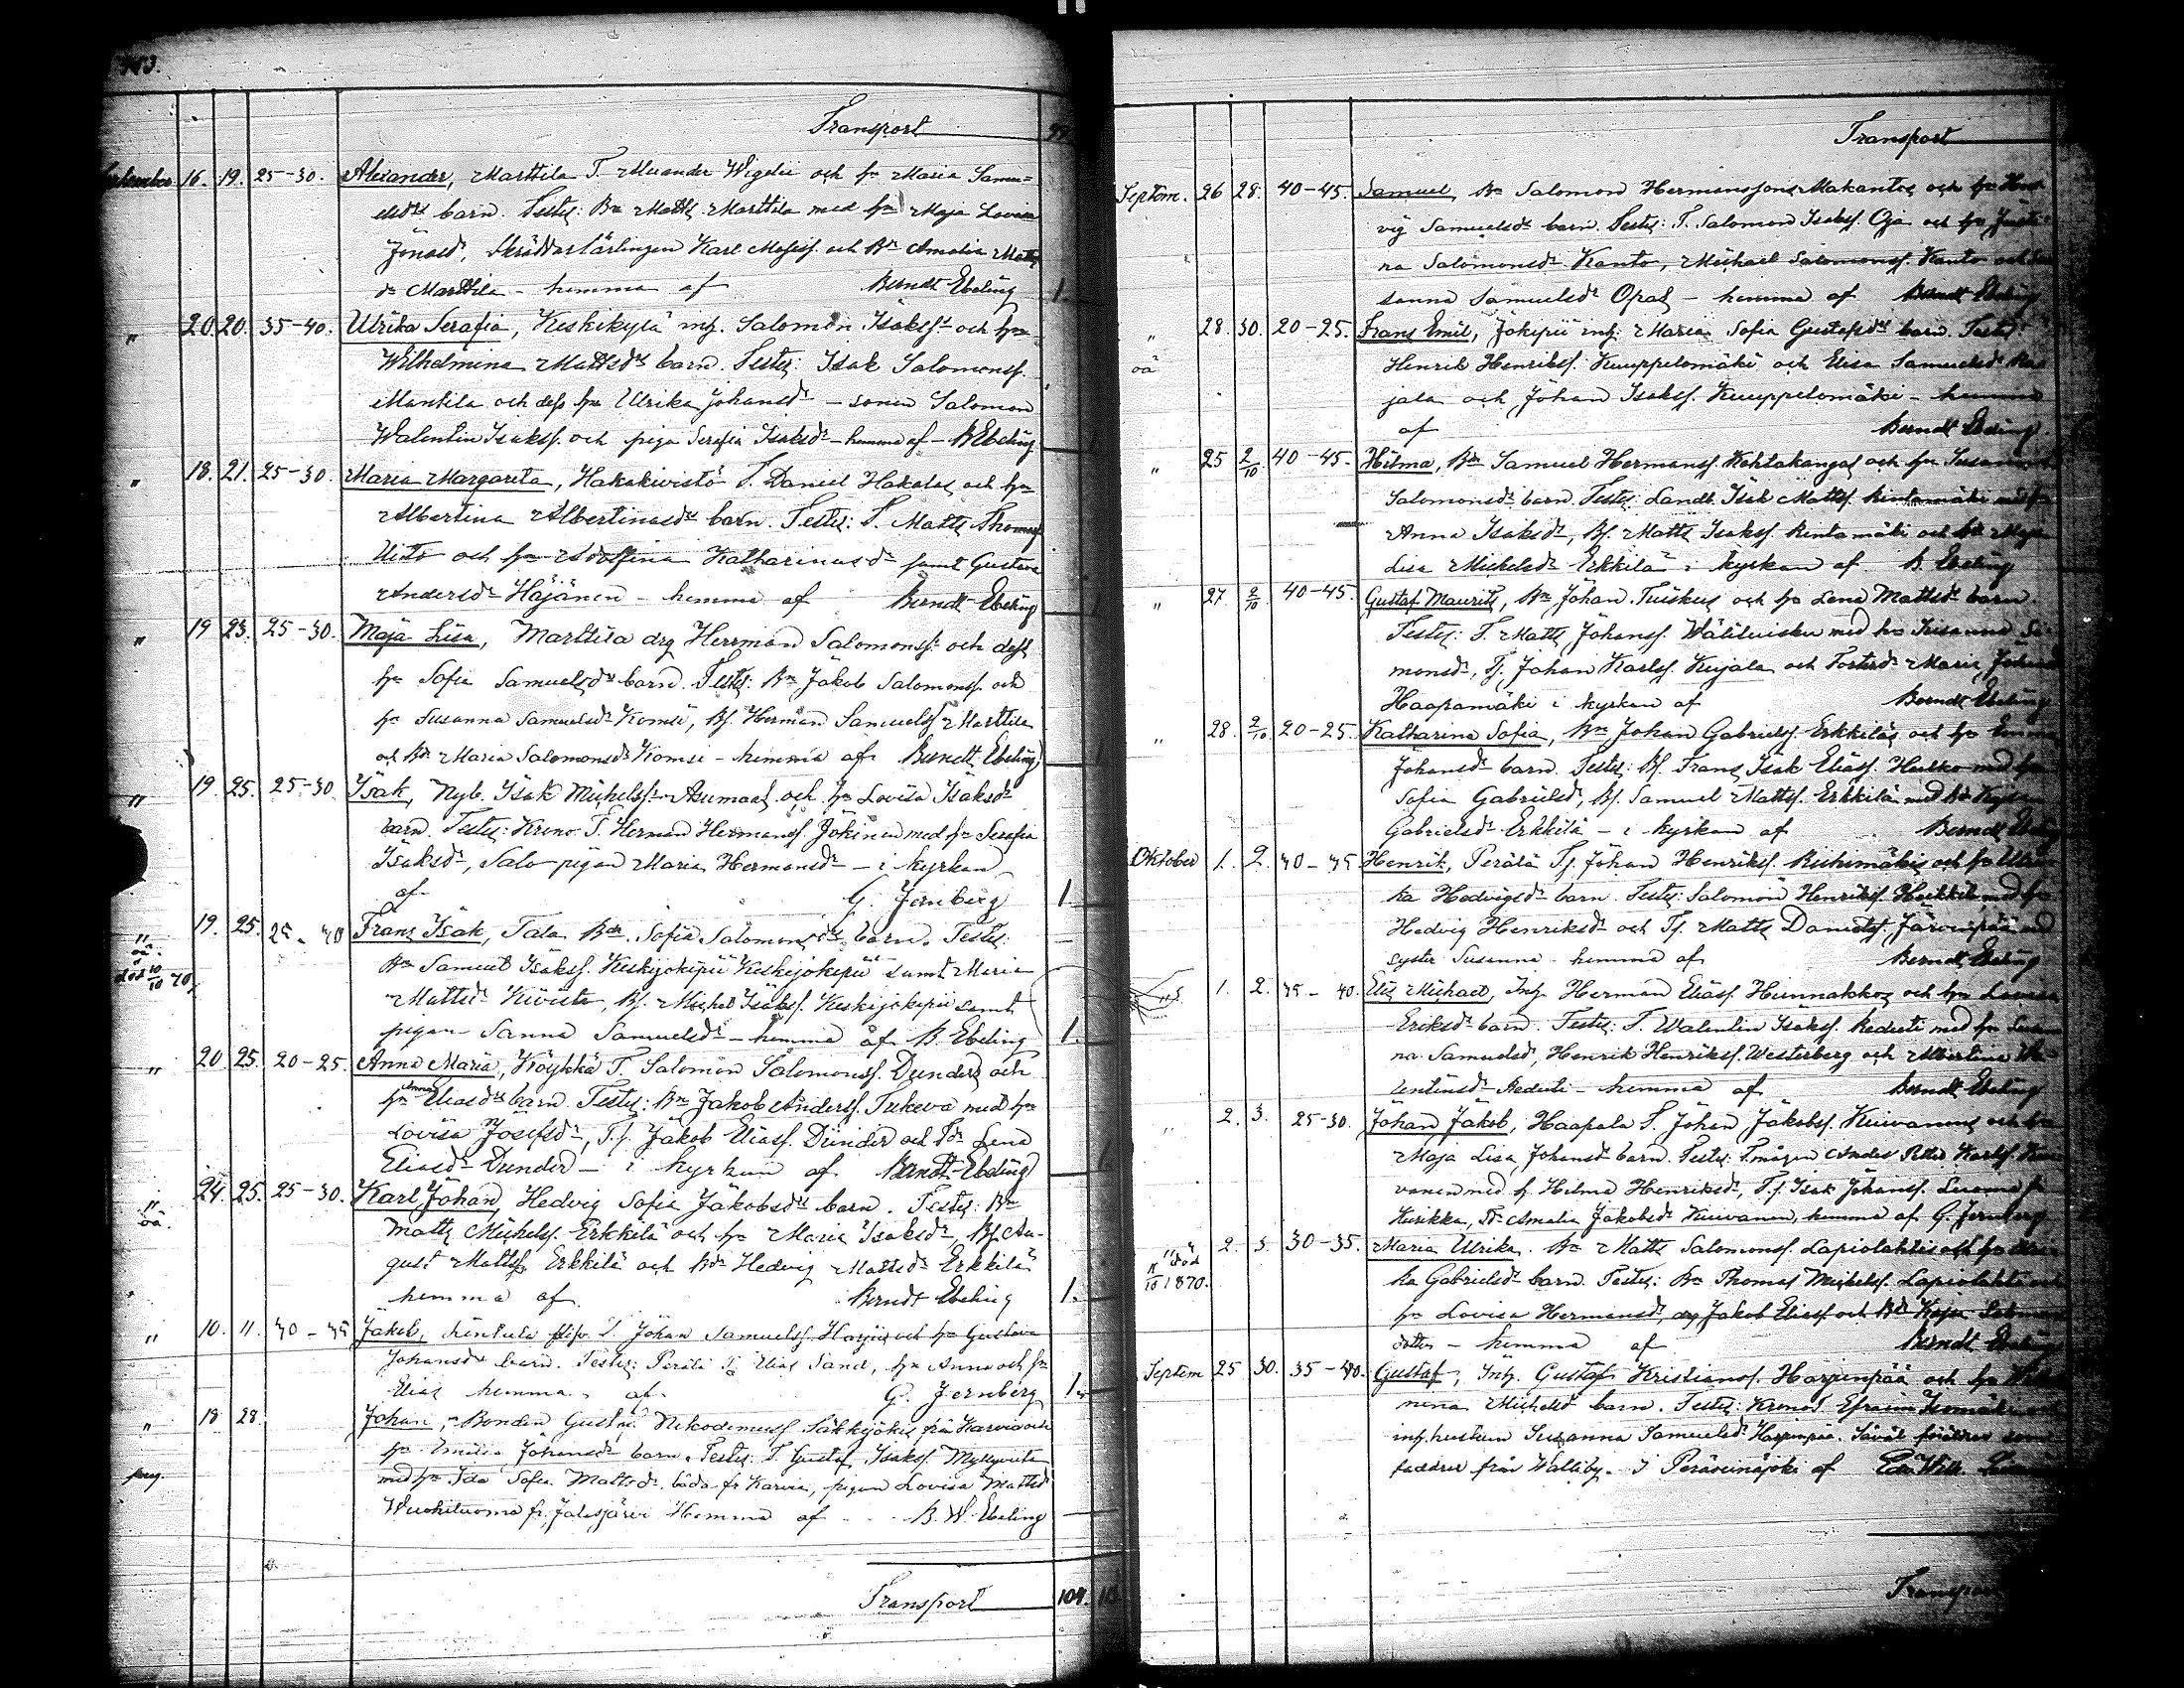 Transport
September 16. 19. 25-30. Alexander, Marttila T. Alexander Wigelii och h:u Maria Samu=
elsd:rs barn. Testes: B:n Matts Marttila med h:u Maja Lovisa
Jonasd:r, Skräddarlärlingen Karl Mosess. och B:dr Amalia Matts
d:r Marttila - hemma af Berndt Ebeling 1.
" 20. 20. 35-40. Ulrika Serafia, Keskikylä inh. Salomon Isakss:s och h:u
Wilhelmina Mattsd:rs barn. Testes: Isak Salomonss.
Mantila och dess h:u Ulrika Johansd:r - sonen Salomon
Walentin Isakss. och piga Serafia Isaksd:r - hemma af - B Ebeling
" 18. 21. 25-30. Maria Margareta, Hakakivistö T. Daniel Hakalas och h:u
Albertina Albertinasd:rs barn. Testes: T. Matts Thomass.
Uitto och h:u Adolfina Katharinasd:r samt Gustava
Andersd:r Häjänen - hemma af Berndt Ebeling
" 19 23. 25-30. Maja Lisa, Marttila drg Herrman Salomonss:s och dess
h:u Sofia Samuelsd:rs barn. Testes: B:n Jakob Salomonss. och
h:u Susanna Samuelsd:r Komsi, Bs. Herman Samuelss. Marttila
och B:dr Maria Salomonsd:r Komsi - hemma af Berndt Ebeling
" 19. 25. 25-30 Isak, Nyb. Isak Michelss:s Asumaas och h:u Lovisa Isaksd:rs
barn. Testes: Krono T. Herman Hermanss. Jokinen med h:u Serafia
Isaksd:r, Salo pigan Maria Hermansd:r - i kyrkan
af G. Jernberg 1.
" oä. död 10/10 70. 19. 25. 25-30 Frans Isak, Tala B:dr Sofia Salomonsd:rs barn. Testes:
B:n Samuel Isakss. Keskijokipii Keskijokipii samt Maria
Mattsd:r Kivistö, Bs. Michel Isakss. Keskijokipii samt
pigan Sanna Samuelsd:r - hemma af B. Ebeling 1.
" 20 25. 20-25. Anna Maria, Köykkä T. Salomon Salomonss. Dunders och
h:u Anna Eliasd:rs barn. Testes: B:n Jakob Anderss. Tukeva med h:u
Lovisa Josefsd:r, T.s. Jakob Eliass. Dunder och T:dr Lena
Eliasd:r Dunder - i kyrkan af Berndt Ebeling
" oä. 24. 25. 25-30. Karl Johan, Hedvig Sofia Jakobsd:rs barn. Testes: B:n
Matts Michelss. Erkkilä och h:u Maria Isaksd:r, Bs. Au-
gust Mattss. Erkkilä och B:dr Hedvig Mattsd:r Erkkilä
hemma af Berndt Ebeling 1.
" 10. 11. 40-45 Jakob, T. Johan Samuelss. Harjus och h:u Gustava
Johansd:rs barn. Testes: Perälä T. Elias Sand, h:u Anna och
Elias hemma af G. Jernberg 1.
" 18 28. Johan, Bonden Gustaf Nikodemuss. Säkkijokis från Karvia och
h:u Emilia Johansd:rs barn. Testes: T. Gustaf Isakss. Myllyviita
med h:u Ida Sofia Mattsd:r båda fr. Karvia, pigan Lovisa Mattsd:r
Wuohituoma fr. Jalasjärvi Hemma af B. W. Ebeling
Transport 104.
Transport
Septem. 26 28. 40-45. Samuel, B:n Salomon Hermanssons Makantos och h:u Hed
vig Samuelsd:rs barn. Testes: T. Salomon Isakss. Oja och h:u Justi
na Salomonsd:r Kanto, Michael Salomonss. Kanto och Su
sanna Samuelsd:r Opas - hemma af Berndt Ebeling
" oä 28. 30. 20-25. Frans Emil, Jokipii inh: Maria Sofia Gustafsd:rs barn. Testes
Henrik Henrikss. Kuuppelomäki och Elisa Samuelsd:r
jala och Johan Isakss. Kuuppelomäki - hemma
af Berndt Ebeling
" 25 2/10. 40-45. Hilma, B:n Samuel Hermanss. Kohtakangas och h:u Susanna
Salomonsd:rs barn. Testes: Landb. Isak Mattss. Rintamäki med h:u
Anna Isaksd:r, Bs. Matts Isakss. Rintamäki och B:dr Maja
Lisa Michelsd:r Erkkilä i kyrkan af B. Ebeling
" 27. 2/10. 40-45. Gustaf Maurits, B:n Johan Tuiskus och h:u Lena Mattsd:rs barn
Testes: T. Matts Johanss. Wäliluisku med h:u Susanna Sa
monsd:r, Tj. Johan Karlss. Kujala och Maria Johansd
Haapamäki i kyrkan af Berndt Ebeling
" 28. 2/10. 20-25. Katharina Sofia, B:n Johan Gabrielss. Erkkiläs och h:u
Johansd:rs barn. Testes: Bs. Frans Isak Eliass. Husko med h:u
Sofia Gabrielsd:r, Bs. Samuel Mattss. Erkkilä med B:dr Kajsa
Gabrielsd:r Erkkilä - i kyrkan af Berndt Ebeling
Oktober 1. 2. 40-45 Henrik, Perälä Tj. Johan Henrikss. Riihimäkis och h:u Ulri
ka Hedvigsd:rs barn. Testes: Salomon Henrikss. Heikkilä med h:u
Hedvig Henriksd:r och Tj. Matts Danielss. Järvenpää med
syster Susanna - hemma af Berndt Ebeling
1. 2. 35-40. Elis Michael, Inh. Herman Eliass. Hunnakkos och h:u Lovisa
Eriksd:rs barn. Testes: T. Walentin Isakss. Redusti med h:u Susan
na Samuelsd:r, Henrik Henrikss. Westerberg och Albertina Wa=
lentinsd:r Redusti - hemma af Berndt Ebeling
" 2. 3. 25-30. Johan Jakob, Haapala T. Johan Jakobss. Kuivanens och h:u
Maja Lisa Johansd:rs barn. Testes: T.mågen Karlss. Kui
vanen med h. Hilma Henriksd:r, T.s. Isak Johanss. fr.
Kurikka, T:dr Amalia Jakobsd:r Kuivanen, hemma af G. Jernberg
" död 10 1870. 2. 3. 30-35. Maria Ulrika. B:n Matts Salomonss. Lapiolahtis och h:u Ulri
ka Gabrielsd:rs barn. Testes: B:n Thomas Michelss. Lapiolahti och
h:u Lovisa Hermansd:r, drg Jakob Eliass. och B:dr Kajsa Salomons
dotter - hemma af Berndt Ebeling
Septem 25 30. 35-40. Gustaf, Inh. Gustaf Kristianss. Harjunpää och h:u Wilhel
mina Michelsd:rs barn. Testes: Kronot. Efraim
inh.hustrun Susanna Samuelsd:r Harjunpää. Såväl föräldrar som
faddrar från Walliby. I Peräseinäjoki af
Transport